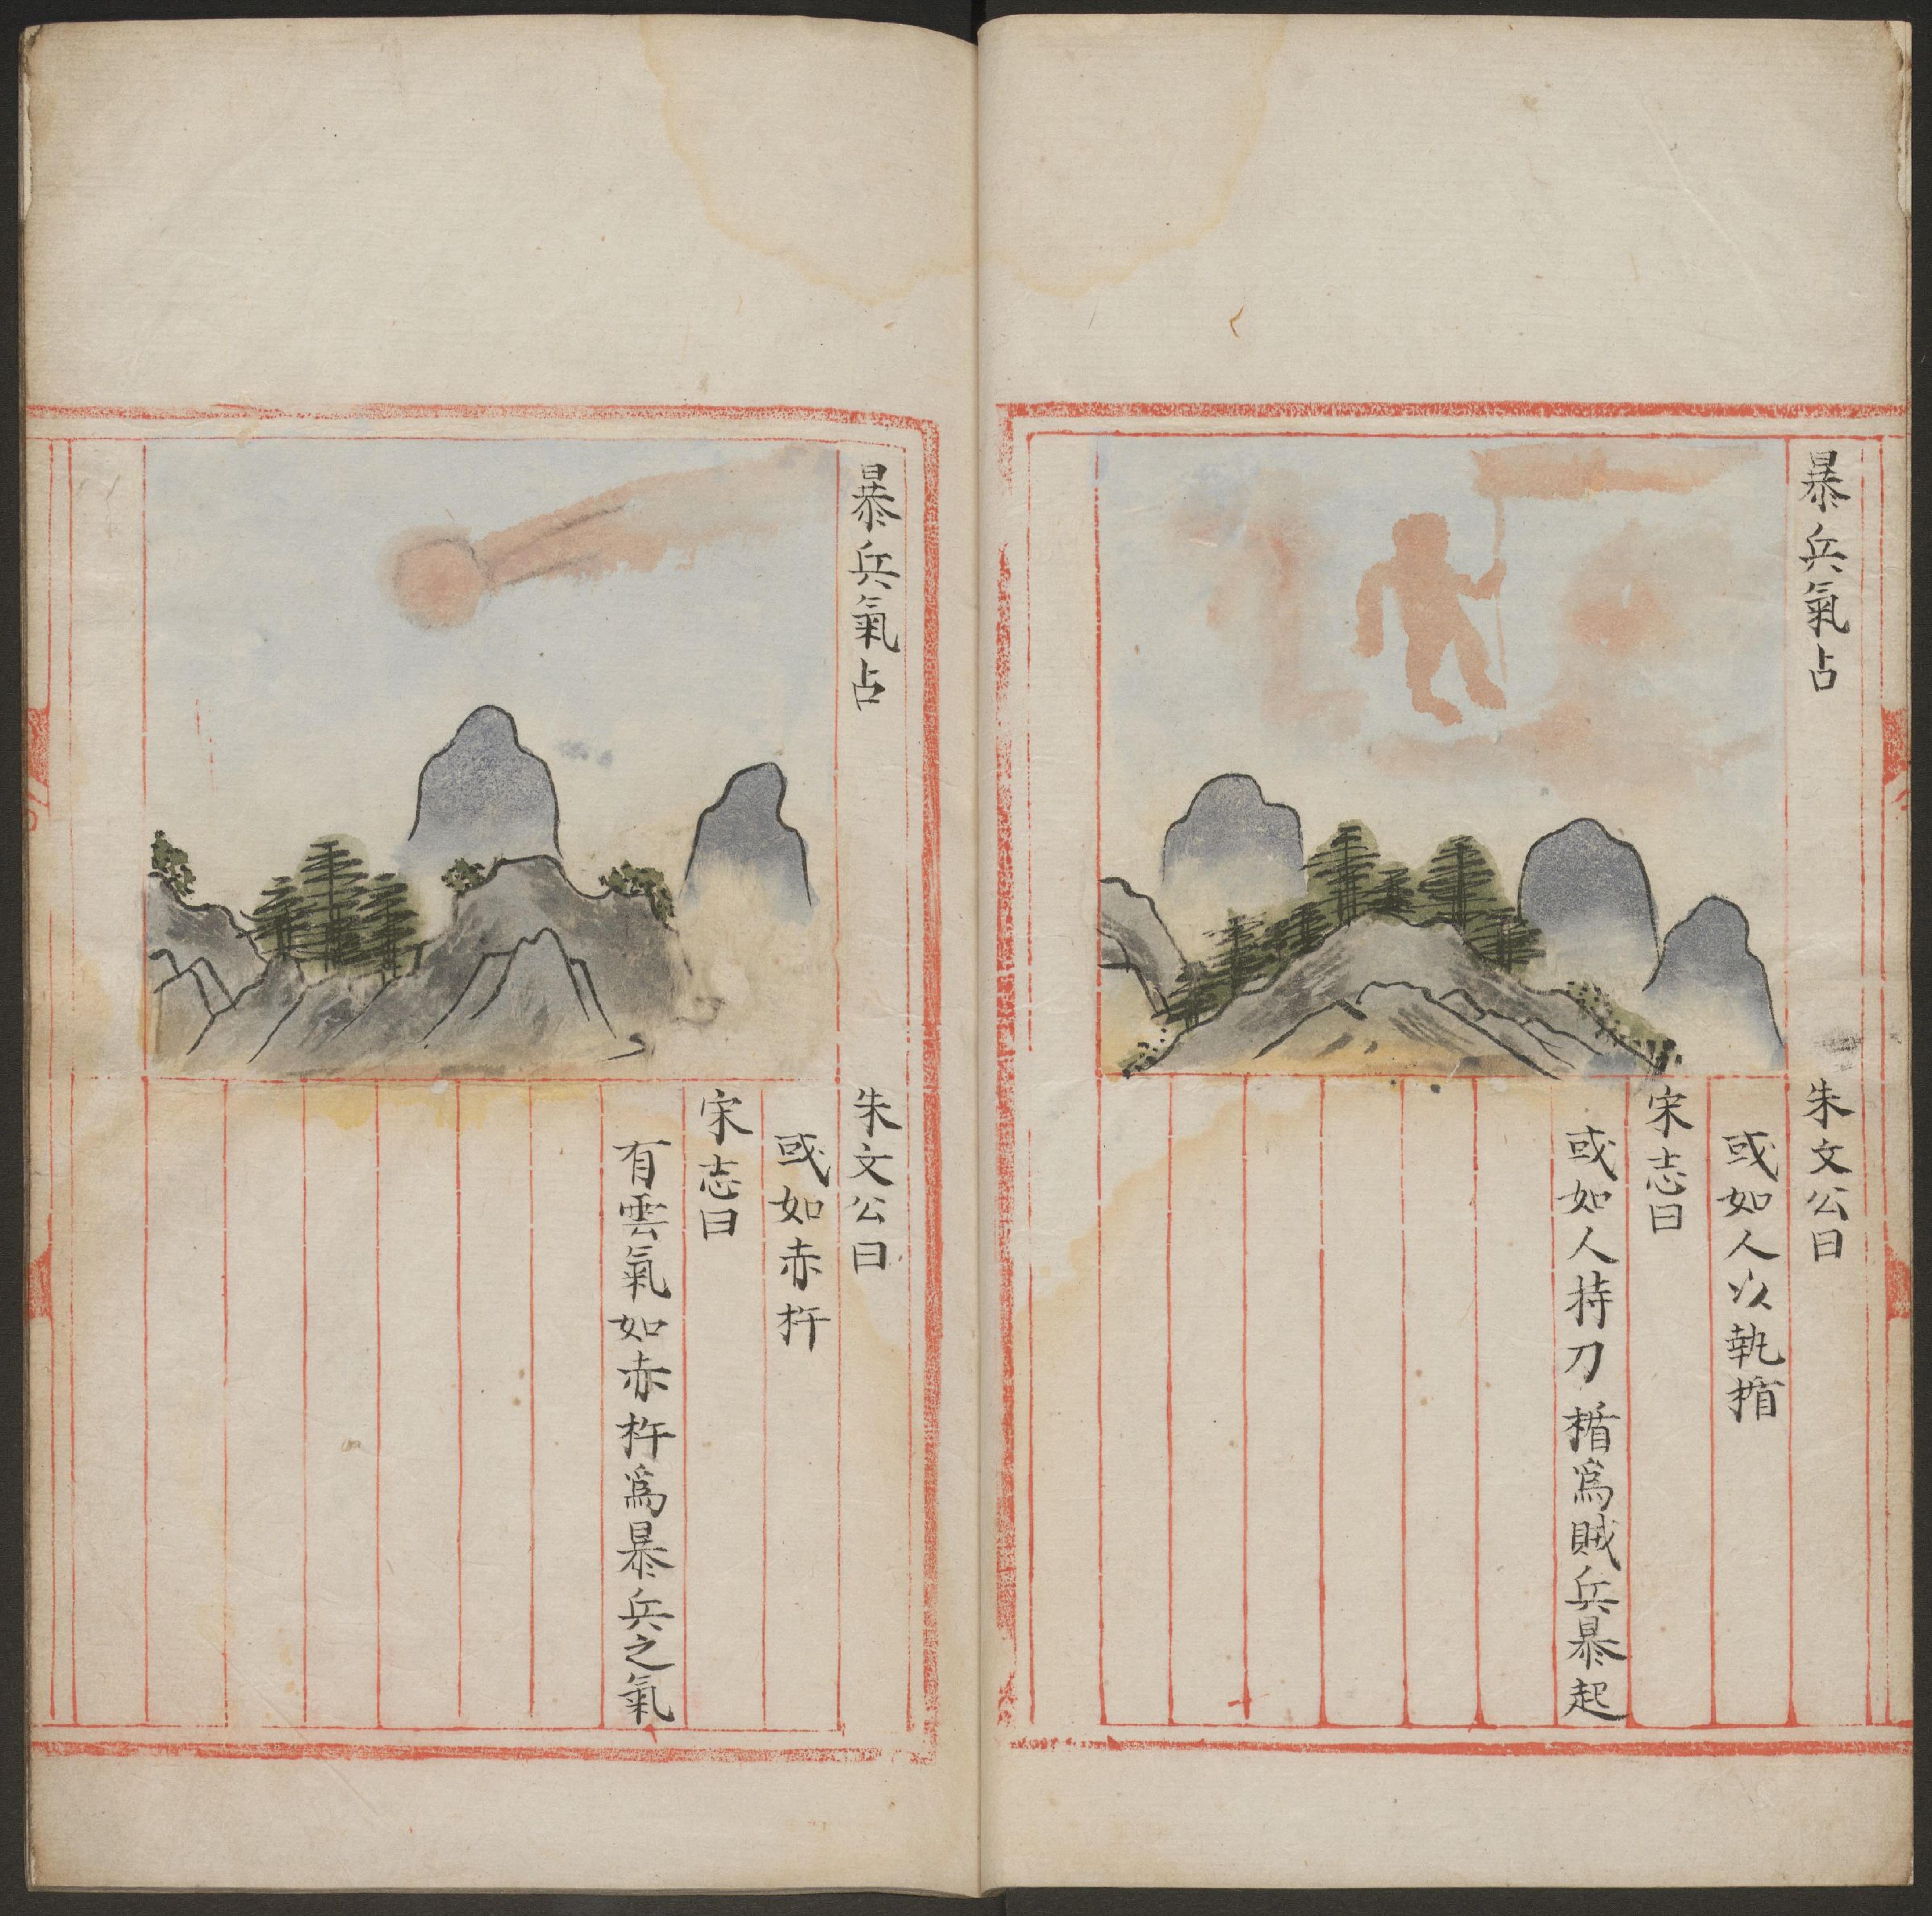 暴兵氣占
朱文公曰
或如人以執揗
宋志曰
或如人持刀楯爲賊兵暴起
暴兵氣占
朱文公曰
或如赤杵
宋志曰
有雲氣如赤杵爲暴兵之氣